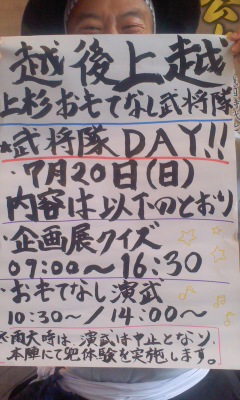 越後上越
上杉おもてなし武将隊
★武将隊DAY!!
・7月20日(日)
内容は以下のとおり
・企画展クイズ
09:00〜16:30
・おもてなし演武
10:30〜/14:00〜
※雨天時は、演武は中止となり、
本陣にて兜体験を実施します。